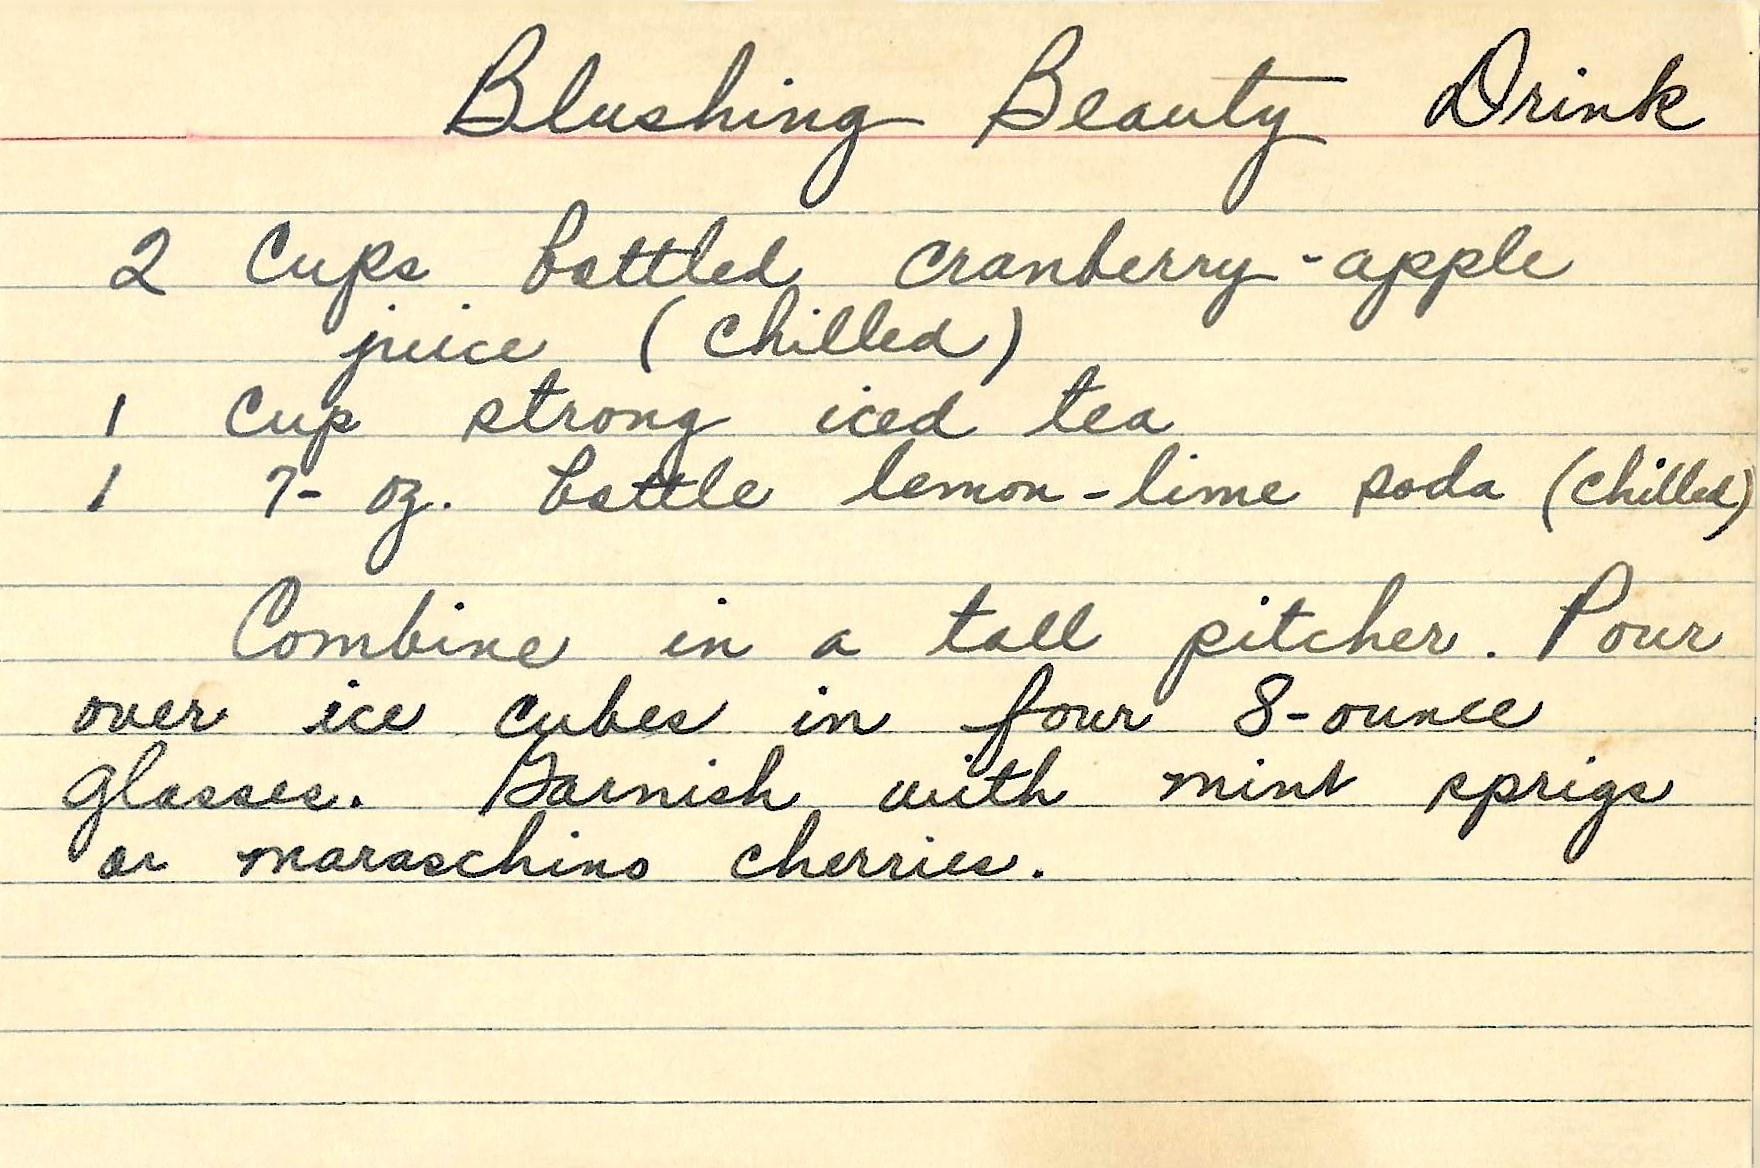 Blushing Beauty Drink
2 Cups bottled cranberry-apple
juice (chilled)
1 Cup strong iced tea
1 7-oz. bottle lemon-lime soda (chilled)
Combine in a tall pitcher. Pour
over ice cubes in four 8-ounce
glasses. Garnish with mint sprigs
or maraschino cherries.